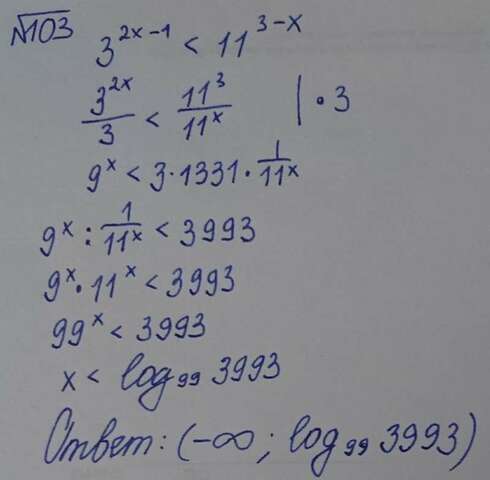 №103 3^{2x-1} < 11^{3-x}
\frac{3^{2x}}{3} < \frac{11^3}{11^x} | · 3
9^x < 3·1331·\frac{1}{11^x}
9^x : \frac{1}{11^x} < 3993
9^x · 11^x < 3993
99^x < 3993
x < log_{99} 3993
Ответ: (-∞; log_{99} 3993)